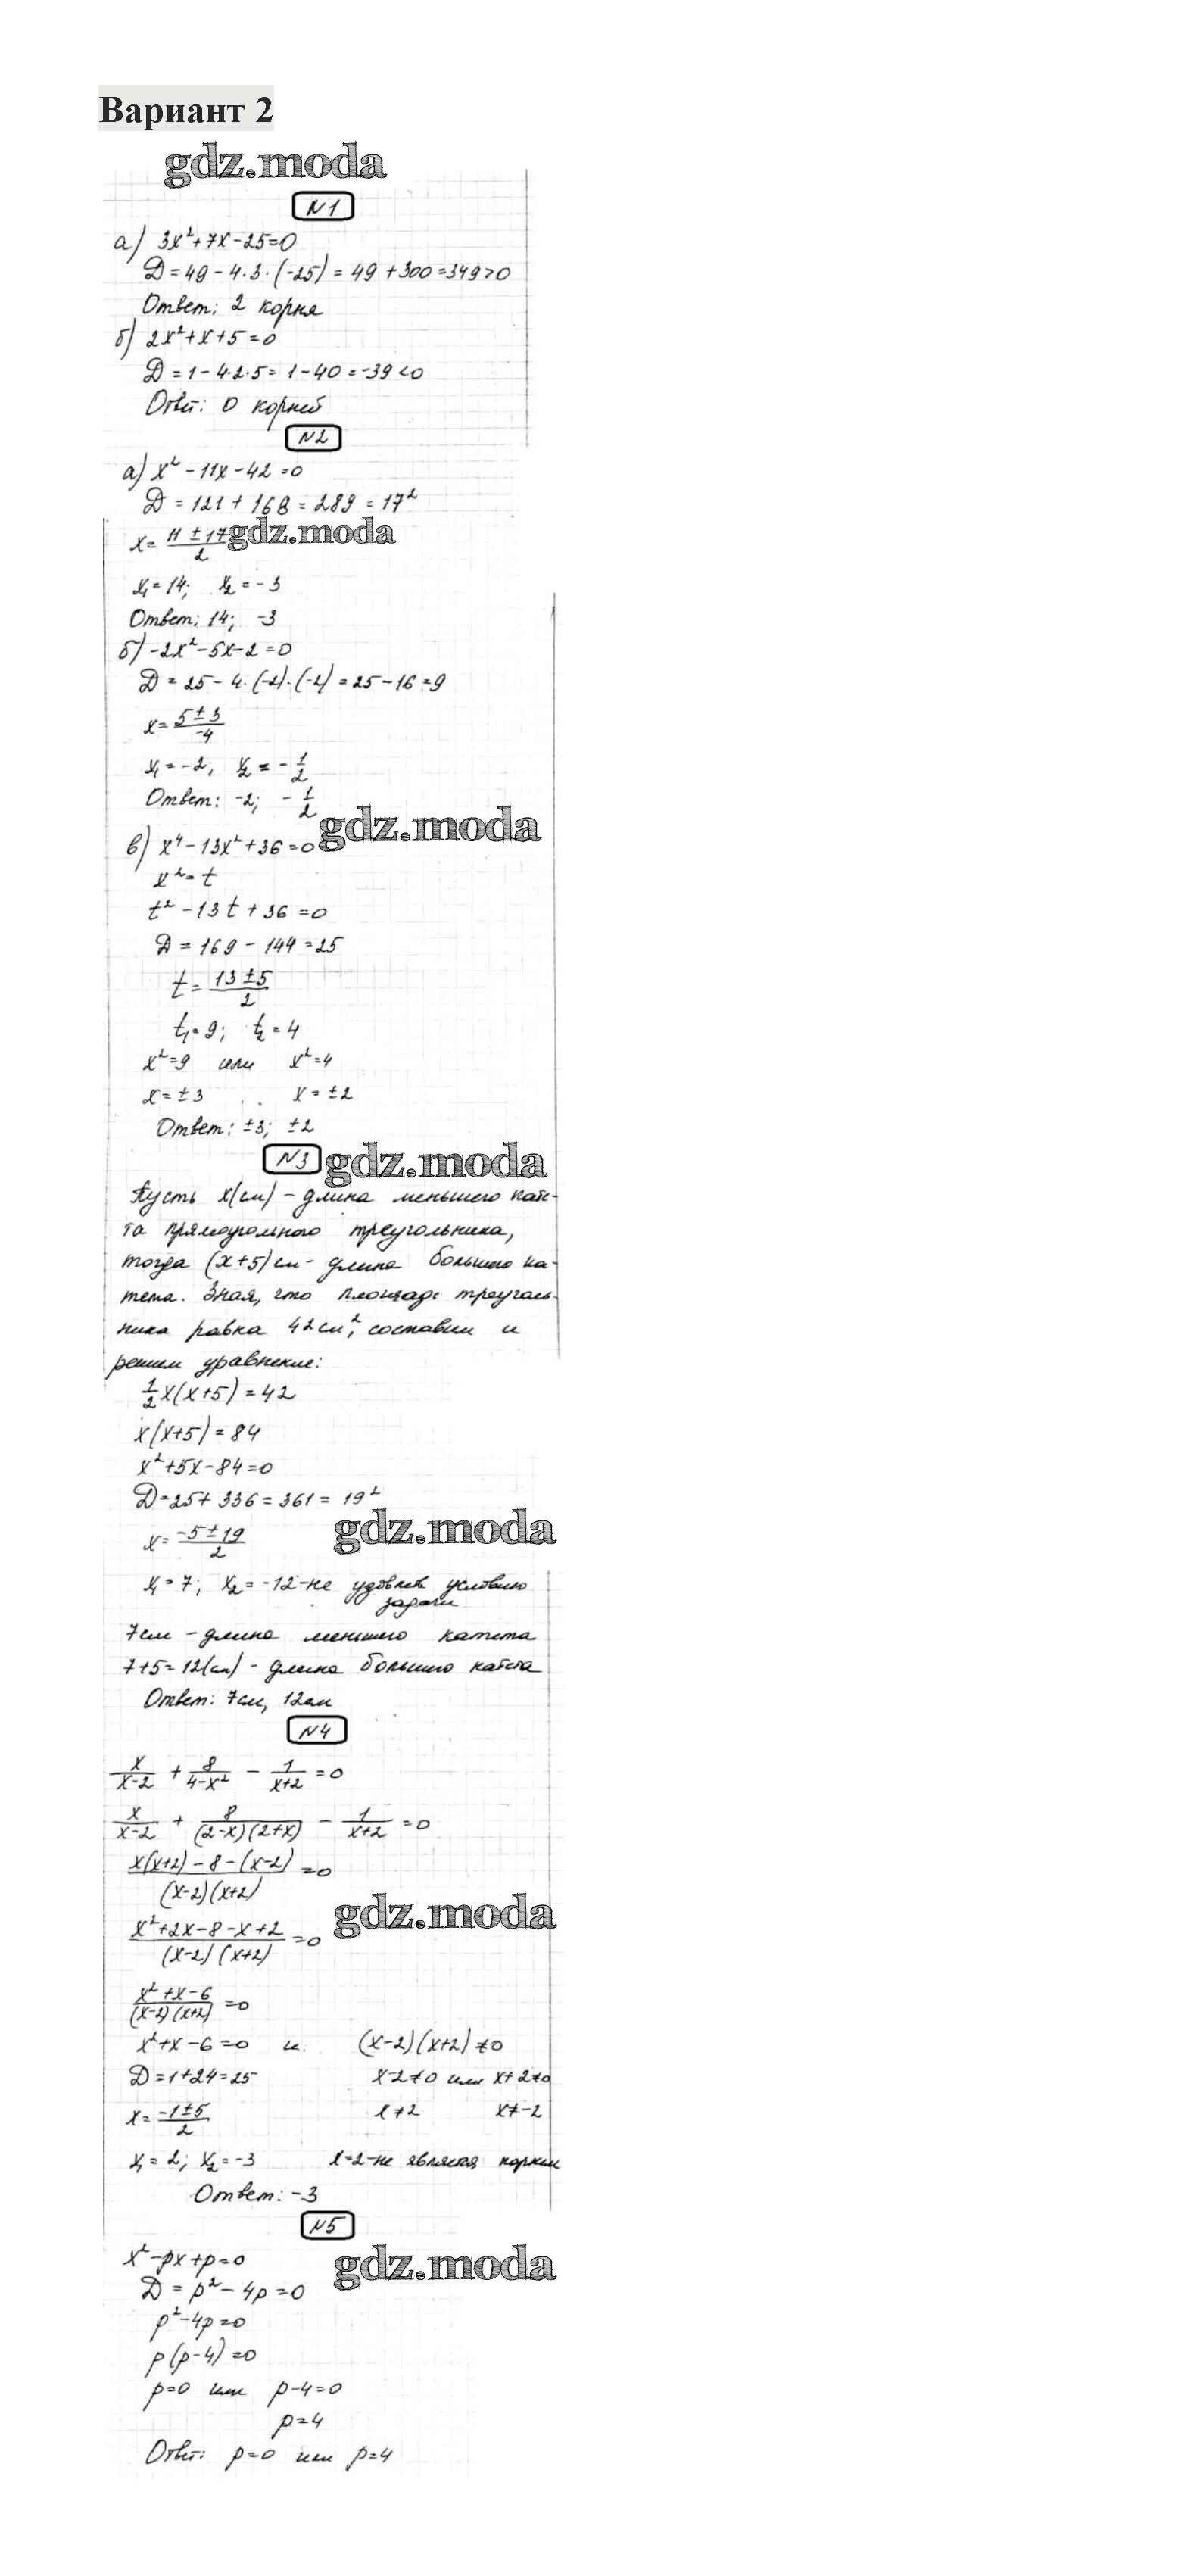 Вариант 2
gdz.moda
N1
а) 3x²+7x-25=0
D=49-4·3·(-25)=49+300=349>0
Ответ: 2 корня
б) 2x²+x+5=0
D=1-4·2·5=1-40=-39<0
Ответ: 0 корней
N2
а) x²-11x-42=0
D=121+168=289=17²
x=(11±17)/2 gdz.moda
x₁=14; x₂=-3
Ответ: 14; -3
б) -2x²-5x-2=0
D=25-4·(-2)·(-2)=25-16=9
x=(5±3)/(-4)
x₁=-2; x₂=-1/2
Ответ: -2; -1/2
gdz.moda
в) x⁴-13x²+36=0
x²=t
t²-13t+36=0
D=169-144=25
t=(13±5)/2
t₁=9; t₂=4
x²=9 или x²=4
x=±3 x=±2
Ответ: ±3; ±2
N3 gdz.moda
Пусть x(см) - длина меньшего кате-
та прямоугольного треугольника,
тогда (x+5)см - длина большего ка-
тета. Зная, что площадь треуголь-
ника равна 42см², составим и
решим уравнение:
1/2x(x+5)=42
x(x+5)=84
x²+5x-84=0
D=25+336=361=19²
x=(-5±19)/2 gdz.moda
x₁=7; x₂=-12-не удовлет. условию
задачи
7см - длина меньшего катета
7+5=12(см) - длина большего катета
Ответ: 7см, 12см
N4
x/(x-2) + 8/(4-x²) - 1/(x+2) =0
x/(x-2) + 8/((2-x)(2+x)) - 1/(x+2) =0
(x(x+2)-8-(x-2))/((x-2)(x+2)) =0
gdz.moda
(x²+2x-8-x+2)/((x-2)(x+2)) =0
(x²+x-6)/((x-2)(x+2)) =0
x²+x-6=0 и (x-2)(x+2)≠0
D=1+24=25 x-2≠0 или x+2≠0
x=(-1±5)/2 x≠2 x≠-2
x₁=2; x₂=-3 x=2-не является корнем
Ответ: -3
N5
x²-px+p=0 gdz.moda
D=p²-4p=0
p²-4p=0
p(p-4)=0
p=0 или p-4=0
p=4
Ответ: p=0 или p=4